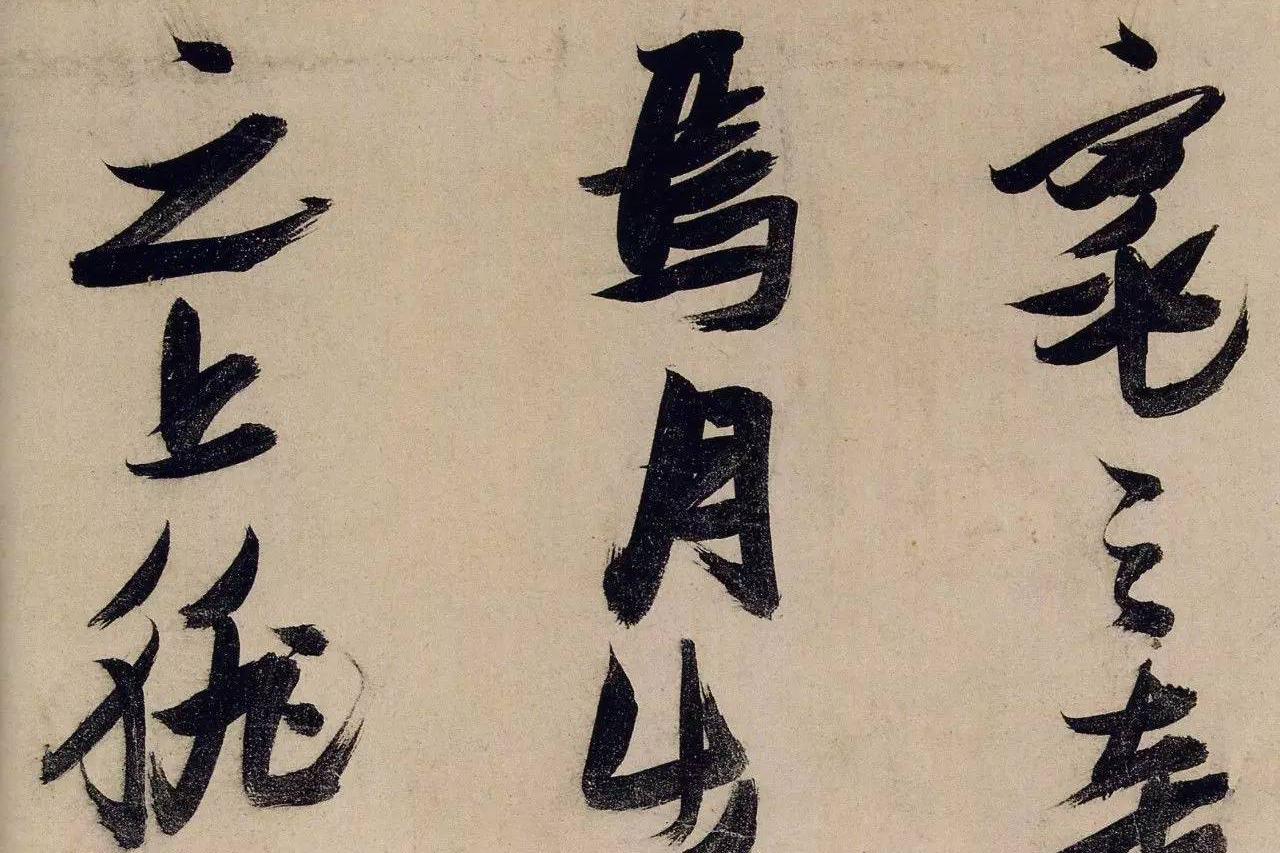 窕之章
焉月出
之上徘